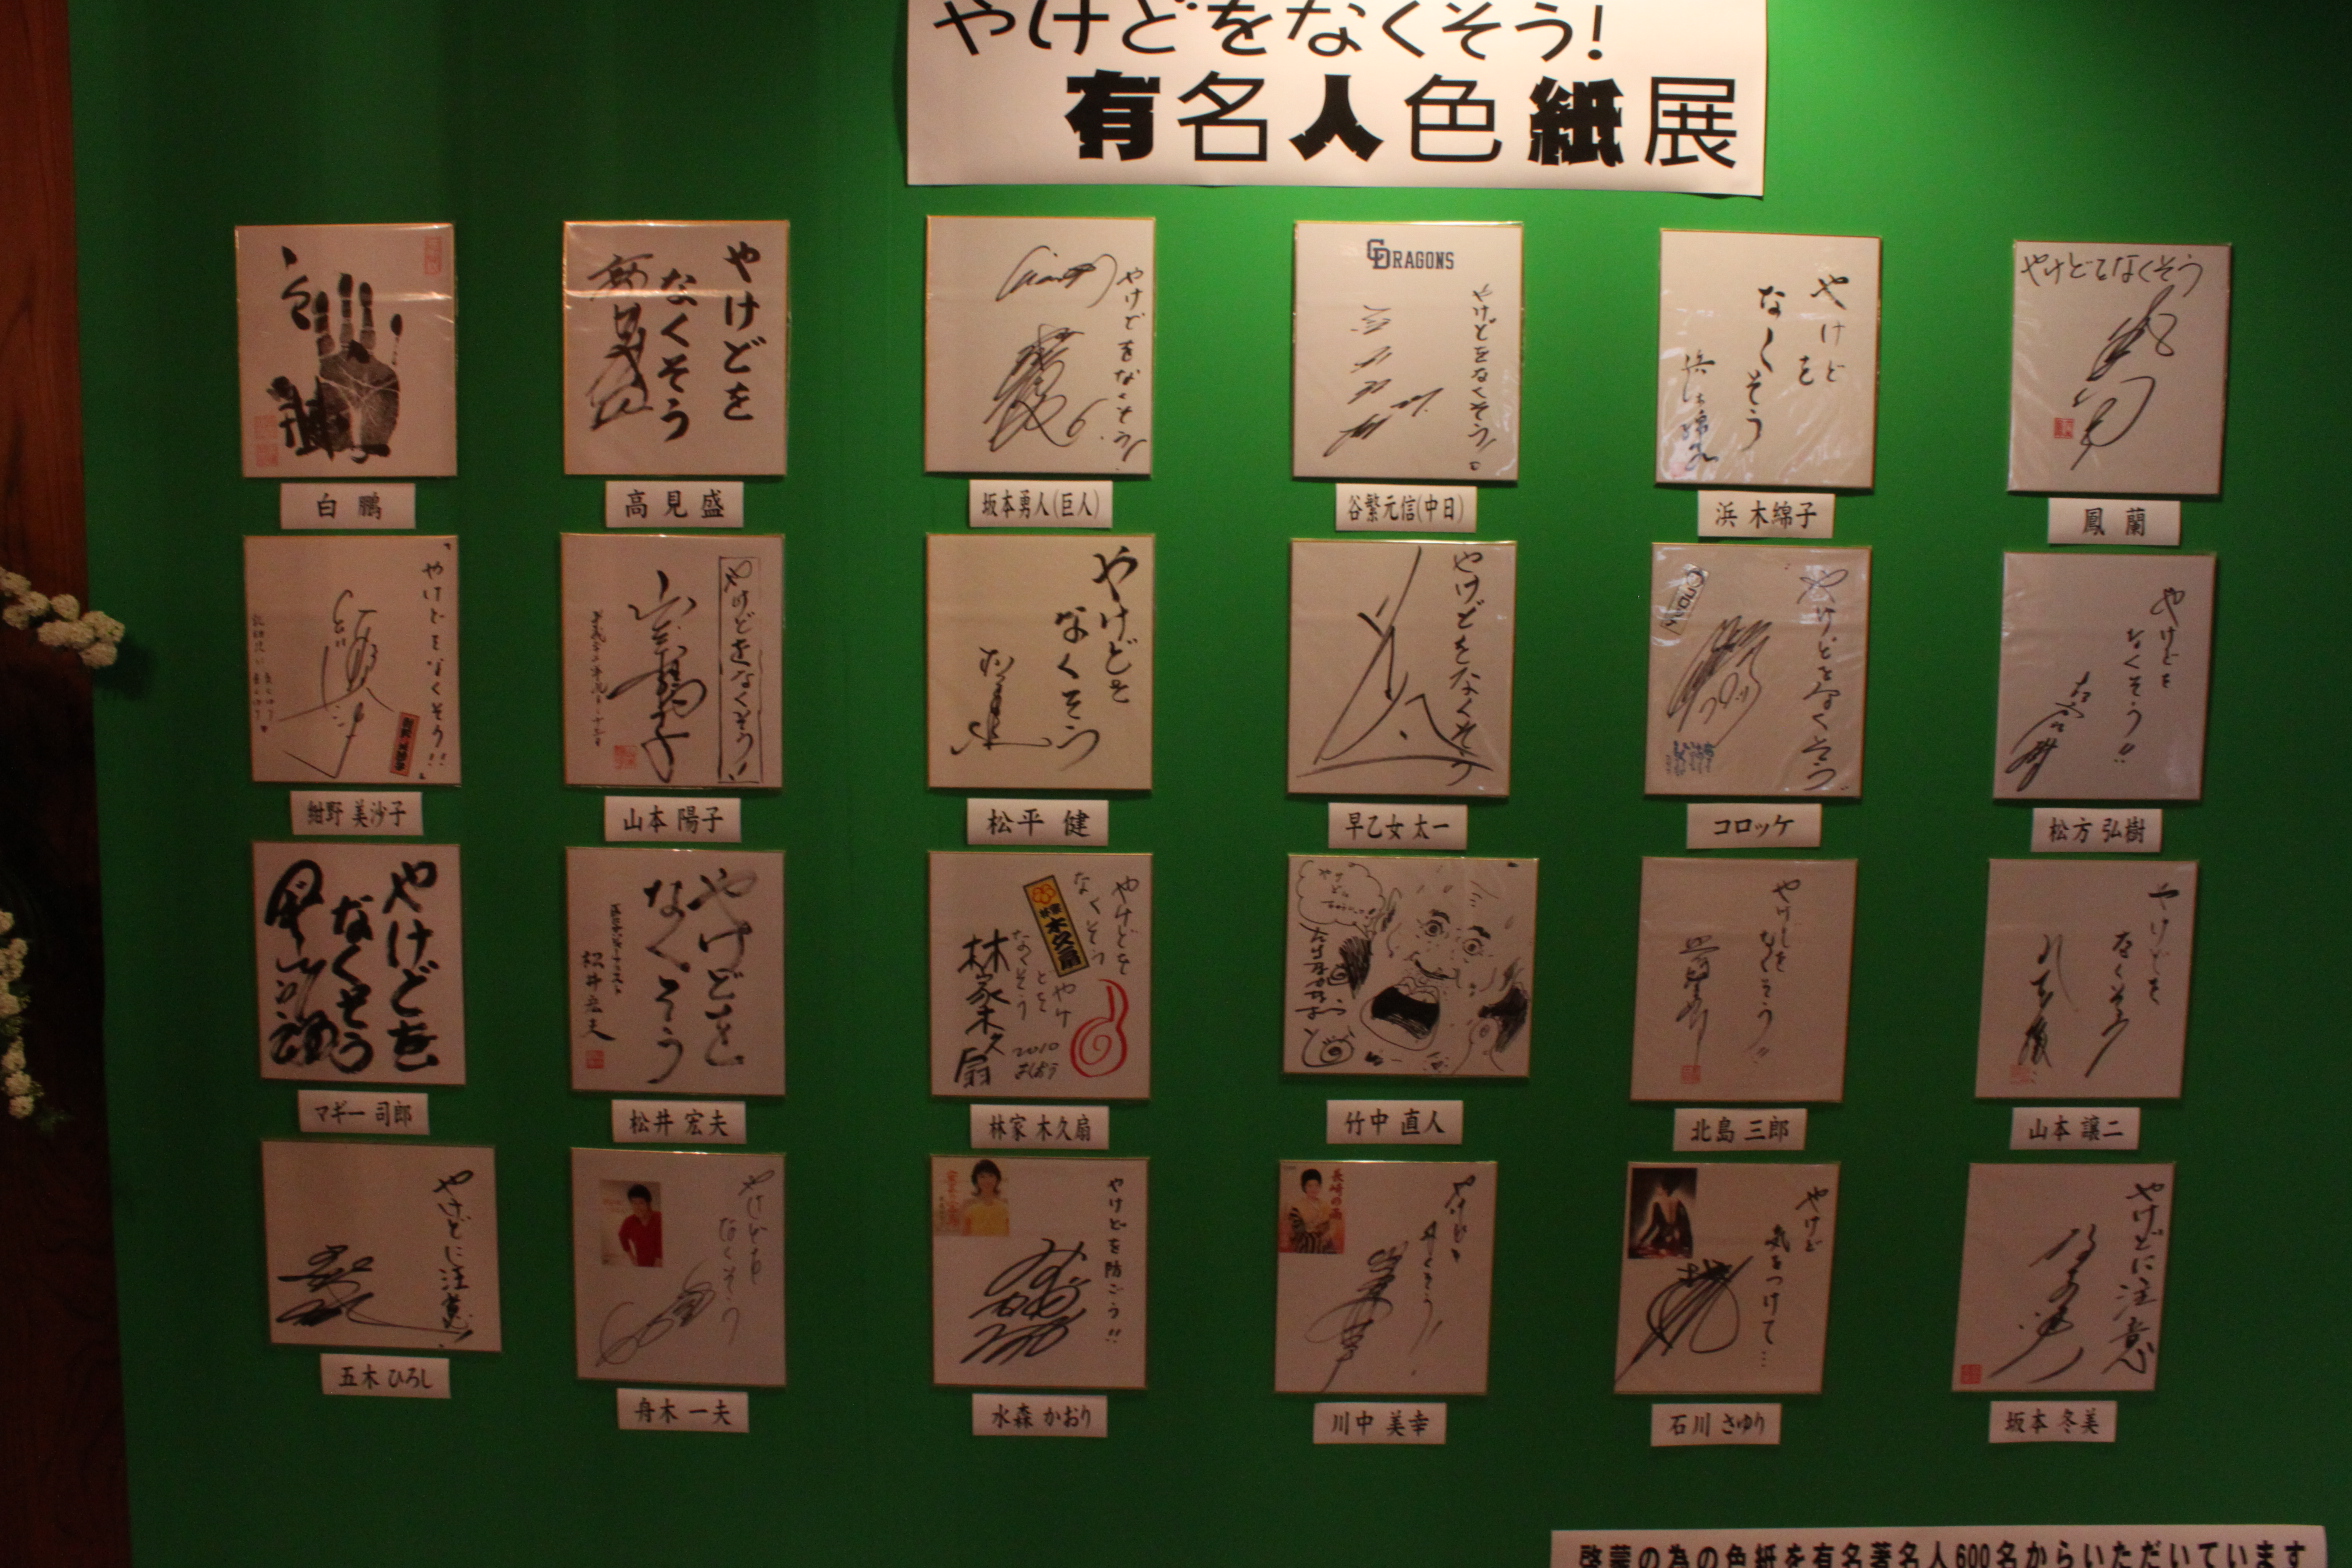 やけどをなくそう!
有名人色紙展
やけどを
なくそう
やけどをなくそう!
DRAGONS
やけどをなくそう!
やけど
を
なくそう
浜木綿子
やけどをなくそう
白鵬
高見盛
坂本勇人(巨人)
谷繁元信(中日)
浜 木綿子
鳳 蘭
やけどをなくそう!!
やけどをなくそう!
山本陽子
やけどを
なくそう
やけどをなくそう
やけどをなくそう
コロッケ
やけどを
なくそう!!
紺野 美沙子
山本 陽子
松平 健
早乙女 太一
コロッケ
松方 弘樹
やけどを
なくそう
やけどを
なくそう
松井宏夫
やけどを
なくそう
木久扇
とを
やけ
なくそう
林家木久扇
2010
やけどを
なくそう!!
やけどを
なくそう
マギー 司郎
松井 宏夫
林家 木久扇
竹中 直人
北島 三郎
山本 譲二
やけどに注意
やけどを
なくそう
やけどを防ごう!!
長崎の雨
やけど
なくそう!!
やけど
気をつけて…
やけどに
注意
五木 ひろし
舟木 一夫
水森 かおり
川中 美幸
石川 さゆり
坂本 冬美
啓蒙の為の色紙を有名著名人600名からいただいています